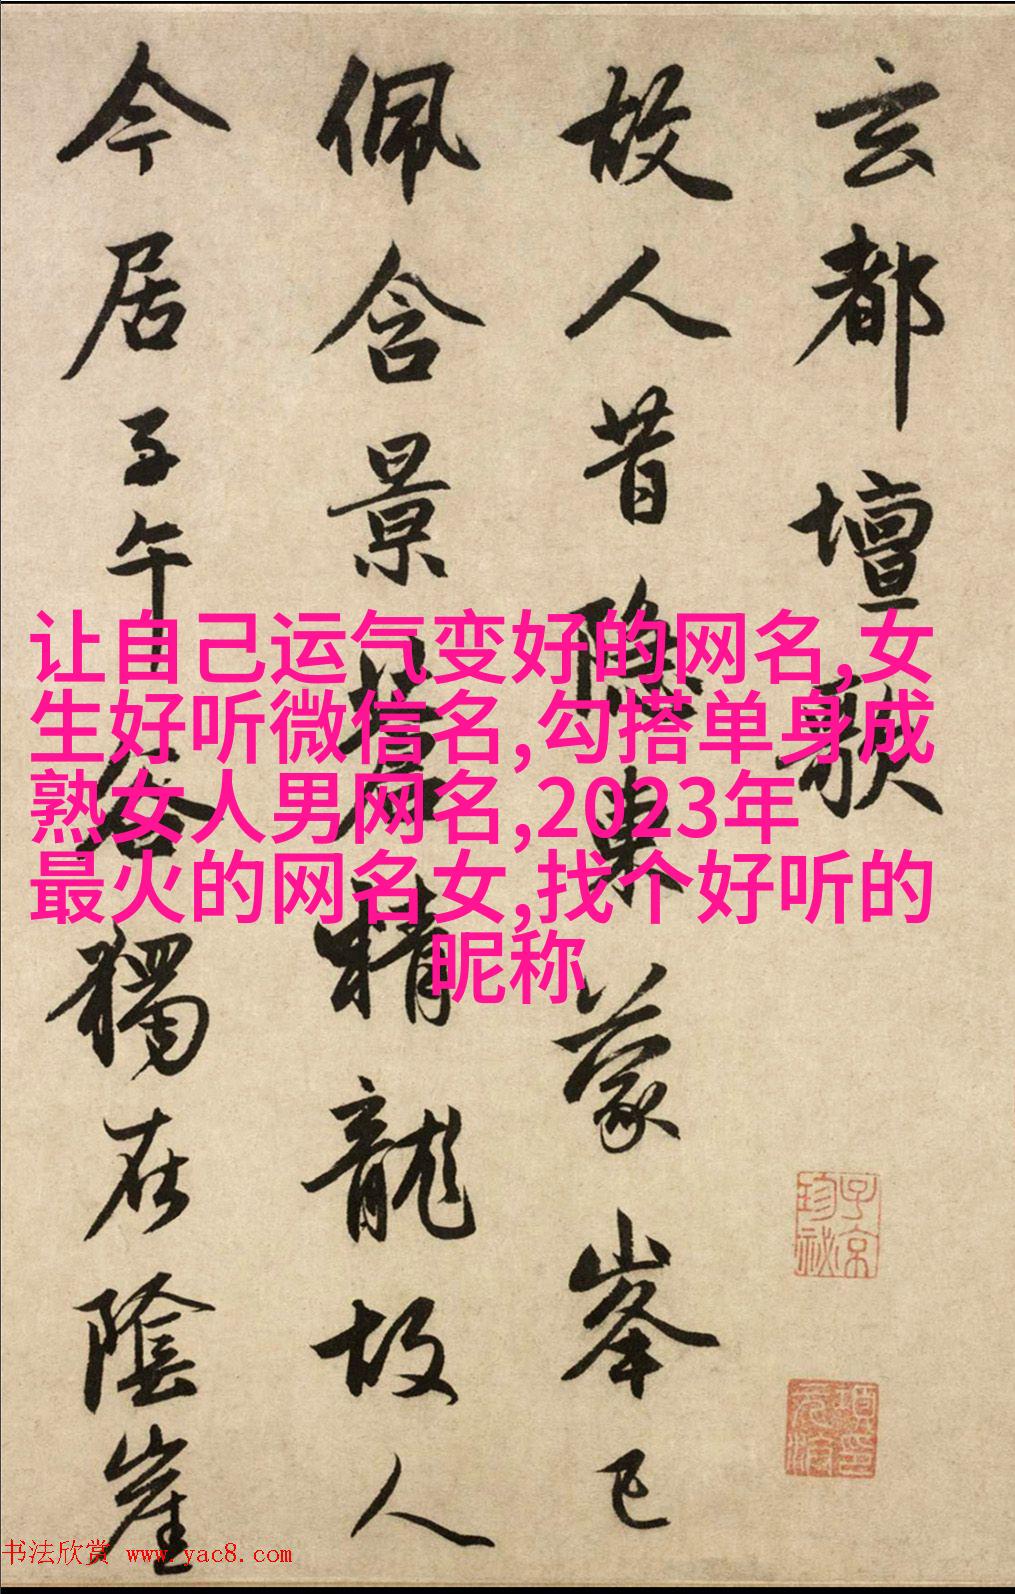 玄都壇歌
故人昔隐東蒙峯已
佩含景蒼精龍故人
今居子午谷獨在陰崖
让自己运气变好的网名,女
生好听微信名,勾搭单身成
熟女人男网名,2023年
最火的网名女,找个好听的
昵称
子京
珍祕
书法欣赏 www.yac8.com